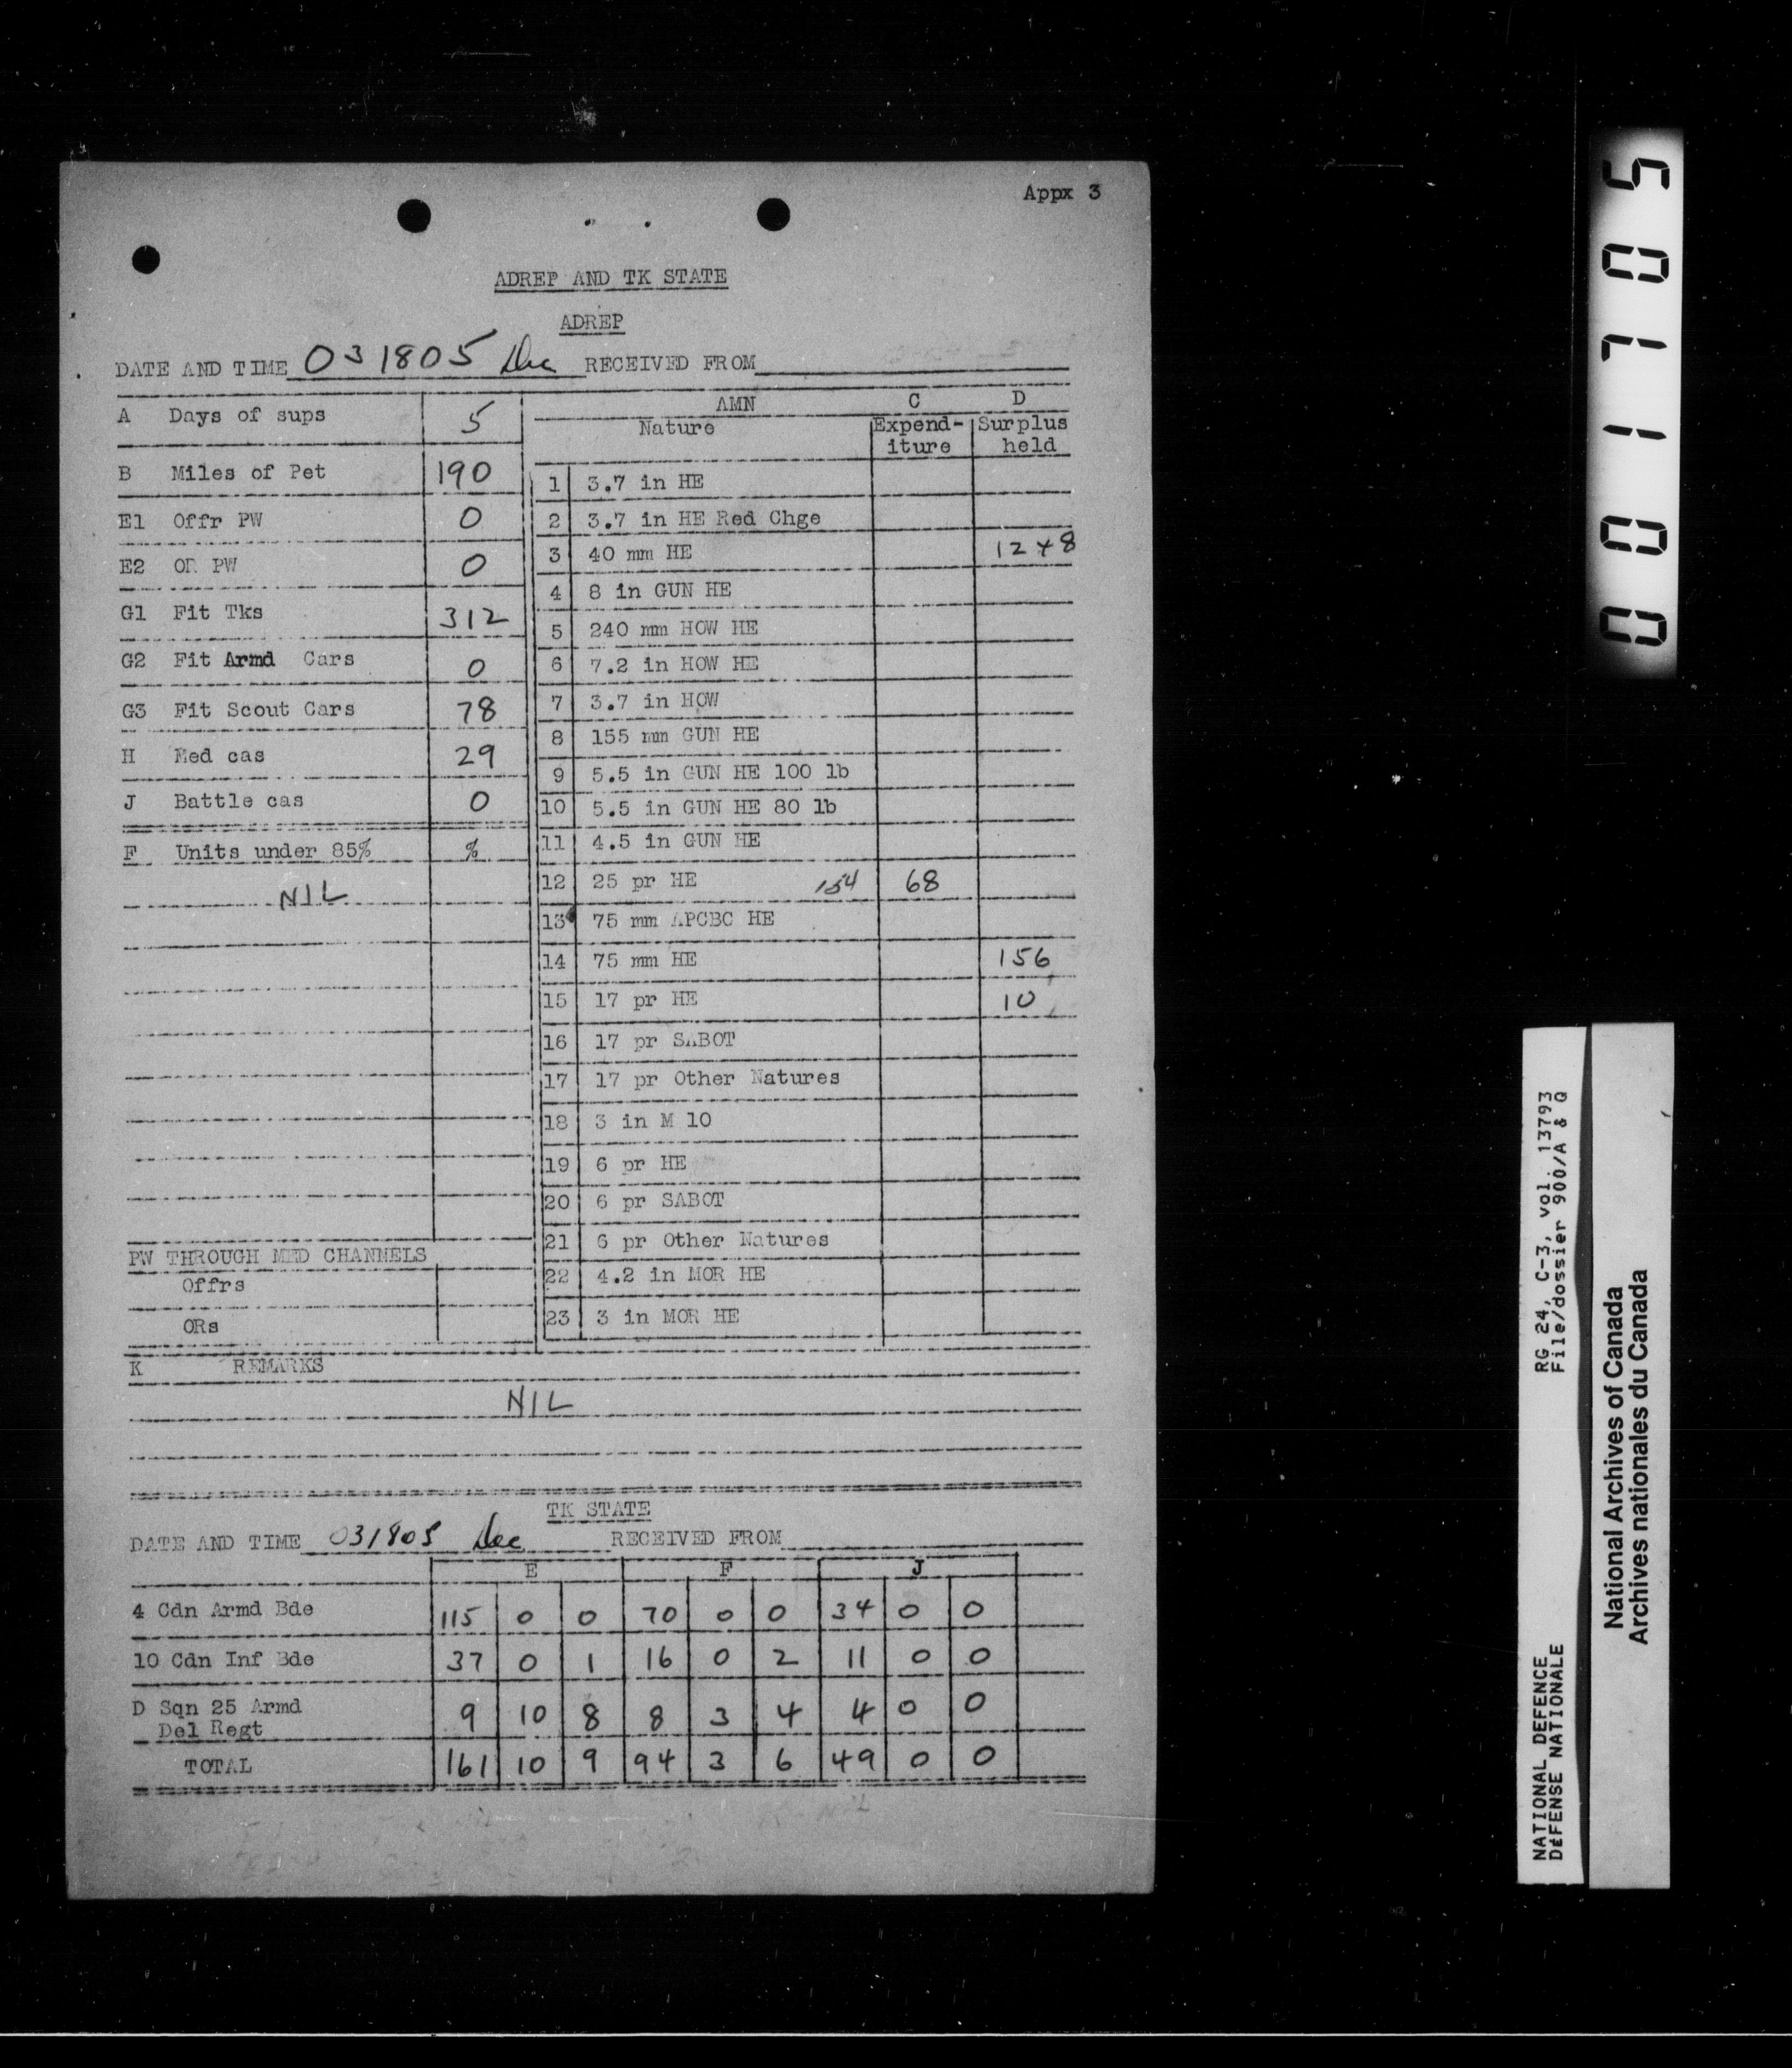 Appx 3
ADREP AND TK STATE
ADREP
DATE AND TIME 031805 Dec RECEIVED FROM
A Days of sups 5
B Miles of Pet 190
E1 Offr PW 0
E2 OR PW 0
G1 Fit Tks 312
G2 Fit Armd Cars 0
G3 Fit Scout Cars 78
H Med cas 29
J Battle cas 0
F Units under 85% %
NIL
PW THROUGH MED CHANNELS
Offrs
ORs
AMN C D
Nature Expend- Surplus
iture held
1 3.7 in HE
2 3.7 in HE Red Chge
3 40 mm HE 1248
4 8 in GUN HE
5 240 mm HOW HE
6 7.2 in HOW HE
7 3.7 in HOW
8 155 mm GUN HE
9 5.5 in GUN HE 100 lb
10 5.5 in GUN HE 80 lb
11 4.5 in GUN HE
12 25 pr HE 154 68
13 75 mm APCBC HE
14 75 mm HE 156
15 17 pr HE 10
16 17 pr SABOT
17 17 pr Other Natures
18 3 in M 10
19 6 pr HE
20 6 pr SABOT
21 6 pr Other Natures
22 4.2 in MOR HE
23 3 in MOR HE
K REMARKS
NIL
TK STATE
DATE AND TIME 031805 Dec RECEIVED FROM
E F J
4 Cdn Armd Bde 115 0 0 70 0 0 34 0 0
10 Cdn Inf Bde 37 0 1 16 0 2 11 0 0
D Sqn 25 Armd
Del Regt 9 10 8 8 3 4 4 0 0
TOTAL 161 10 9 94 3 6 49 0 0
001705
NATIONAL DEFENCE RG 24, C-3, vol. 13793
DÉFENSE NATIONALE File/dossier 900/A & Q
National Archives of Canada
Archives nationales du Canada